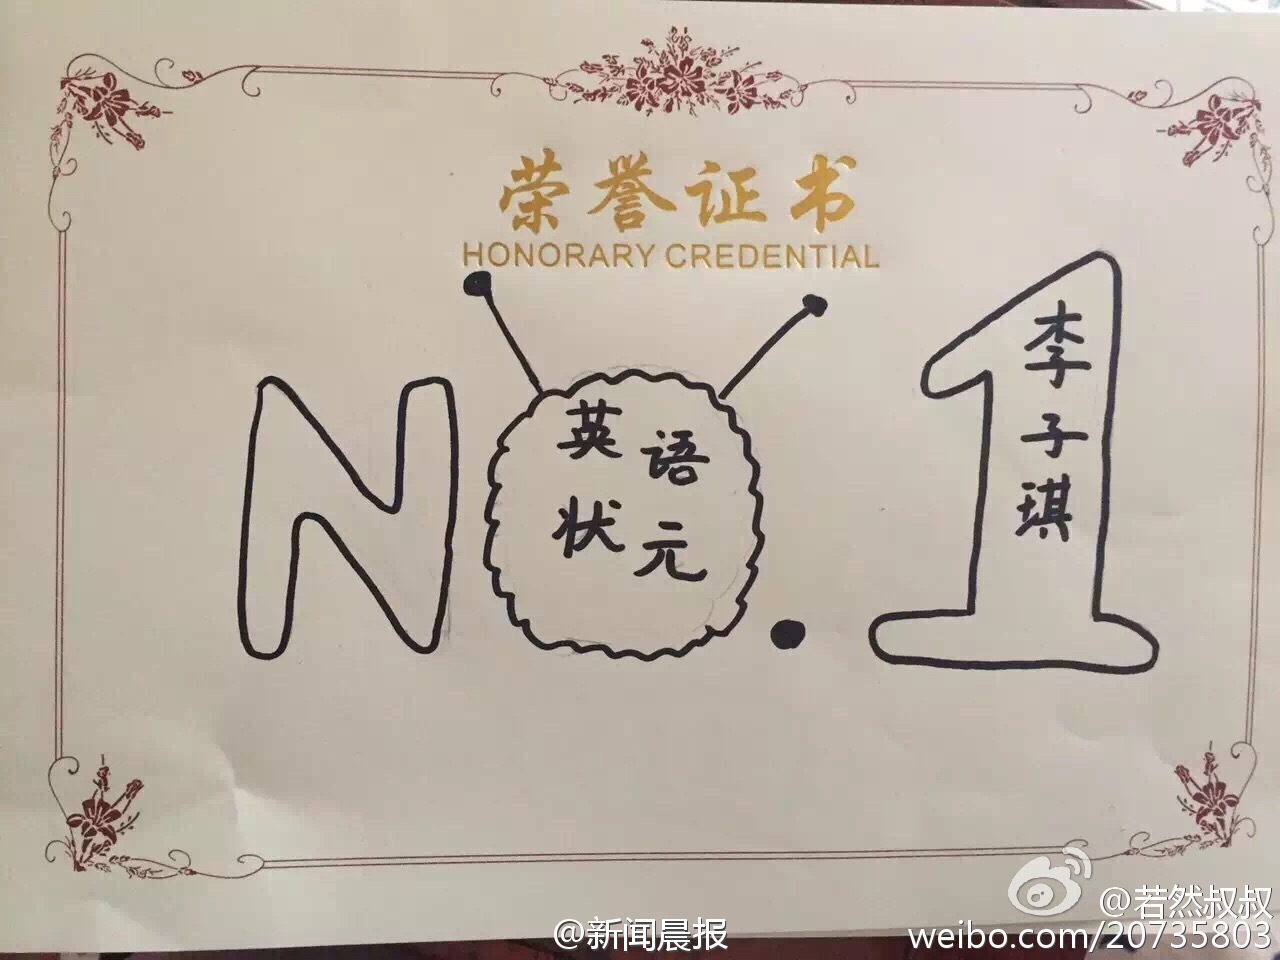 荣誉证书
HONORARY CREDENTIAL
NO.1
英语
状元
李子琪
@若然叔叔
@新闻晨报
weibo.com/20735803